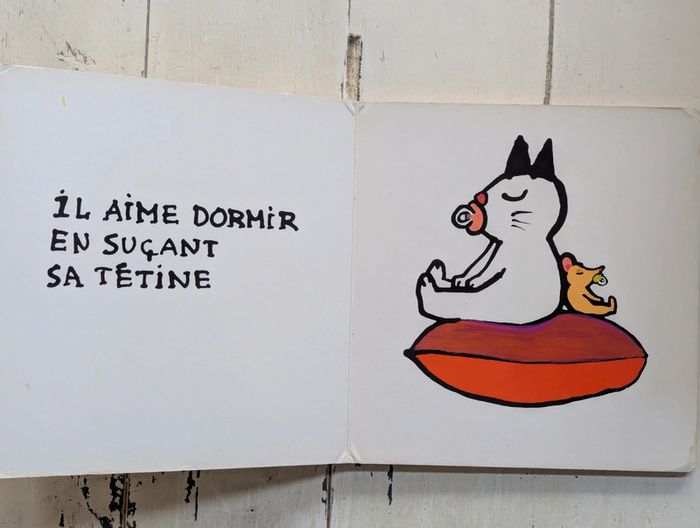 iL AiME DORMiR
EN SUÇANT
SA TÉTiNE